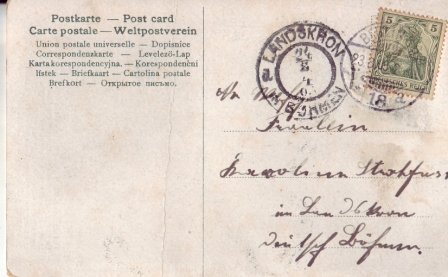 Postkarte — Post card
Carte postale — Weltpostverein
Union postale universelle — Dopisnice
Correspondenzkarte — Levelező-Lap
Karta korespondencyjna. — Korespondenční
lístek — Briefkaart — Cartolina postale
Brefkort — Открытое письмо.
LANDSKRON
IN BÖHMEN
5 5
DEUTSCHES REICH
An
Fräulein
Karoline
im Landskron
deutsch Böhmen.